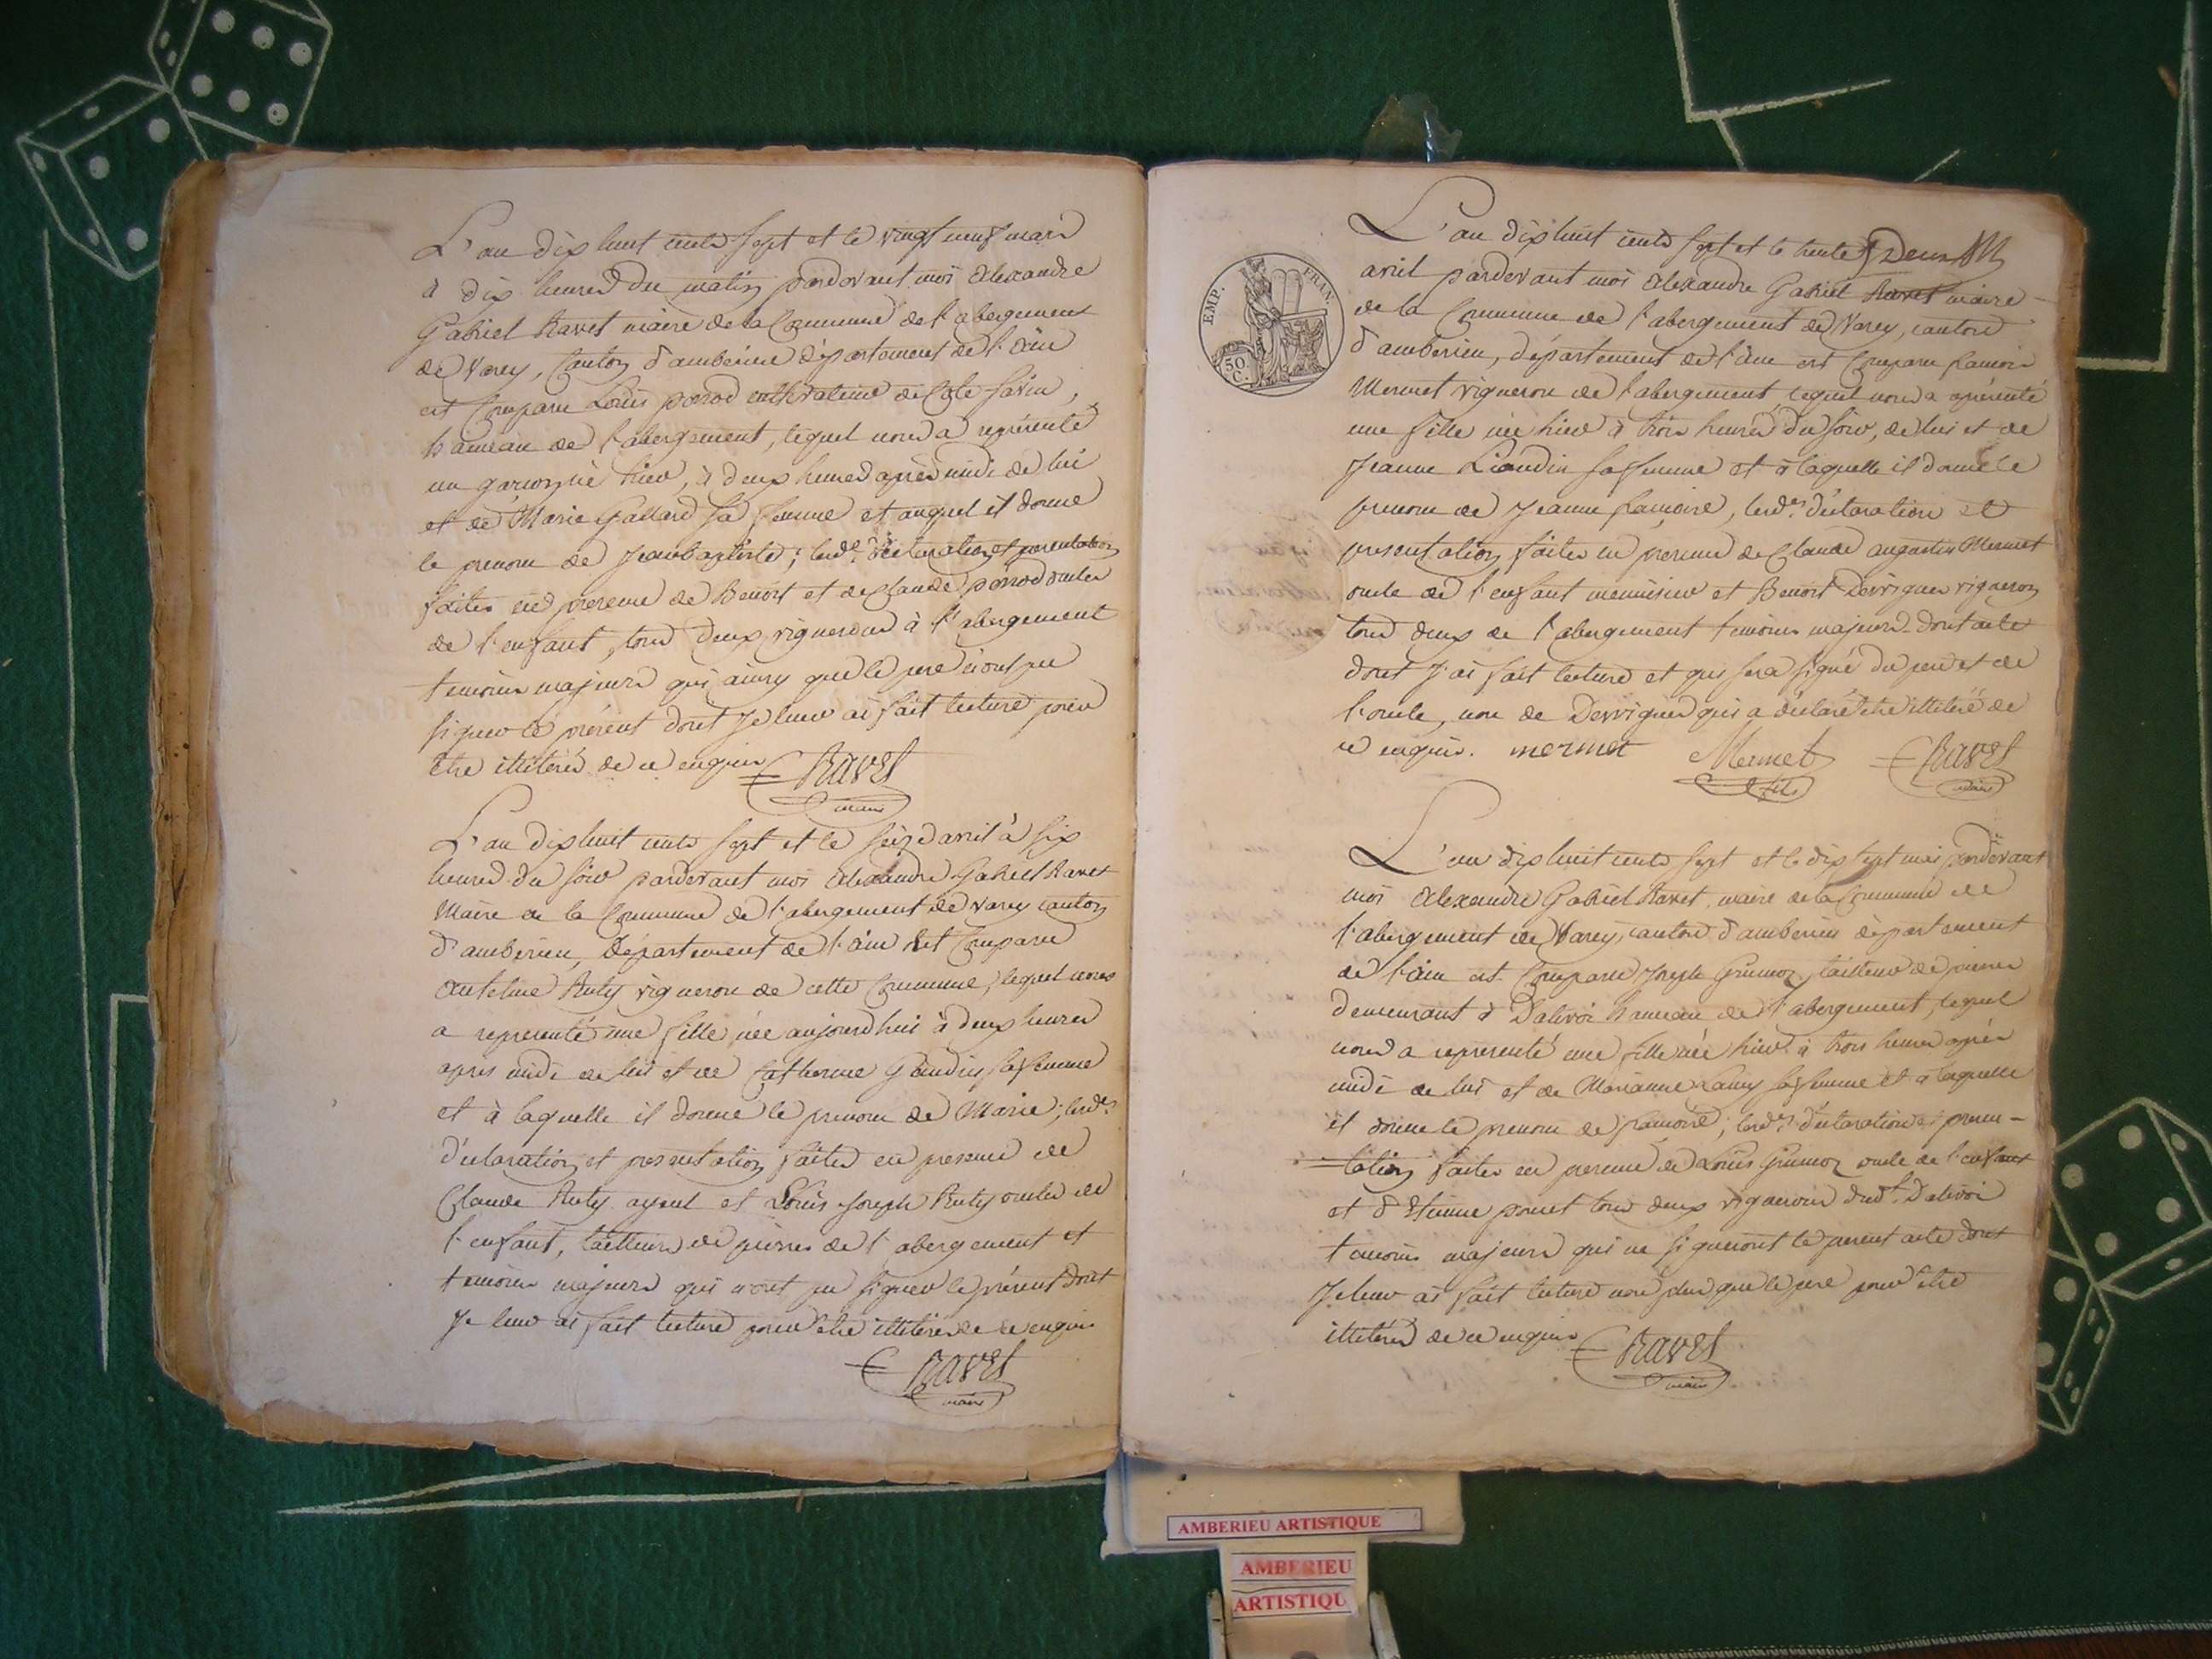 L'an dix huit cents sept et le vingt neuf mars
à dix heures du matin pardevant moi Alexandre
Gabriel Ravet maire de la Commune de l'abergement
de Varey, Canton d'amberieu département de l'ain
est Comparu Louis cultivateur de Côte savin,
hameau de l'abergement, lequel nous a représenté
un garçon né hier, à deux heures après midi de lui
et de Marie Gallard sa femme et auquel il donne
le prenom de Jeanbaptiste; lesd.es déclaration et presentation
faites en presence de Benoît et de Claude oncles
de l'enfant, tous deux vignerons à l'abergement
temoins majeurs qui ainsy que le pere n'ont pu
signer le présent dont Je leur ai fait lecture pour
être illitérés de ce enquis
Ravet
maire
L'an dix huit cents sept et le seize avril à six
heures du soir pardevant moi Alexandre Gabriel Ravet
Maire de la Commune de l'abergement de Varey canton
d'amberieu, Département de l'ain est Comparu
Antelme Ruty vigneron de cette Commune, lequel nous
a representé une fille née aujourdhui à deux heures
apres midi de lui et de Catherine sa femme
et à laquelle il donne le prenom de Marie; lesd.es
déclaration et presentation faites en presence de
Claude Ruty ayeul et Louis Joseph Ruty oncle de
l'enfant, tailleurs de pierres de l'abergement et
temoins majeurs qui n'ont pu signer le présent dont
Je leur ai fait lecture pour être illitérés de ce enquis
Ravet
maire
EMP. FRAN.
50 C.
L'an dix huit cents sept et le trente
avril pardevant moi Alexandre Gabriel Ravet maire
de la Commune de l'abergement de Varey, canton
d'amberieu, département de l'ain est Comparu
Mermet vigneron de l'abergement lequel nous a
une fille née hier à trois heures du soir, de lui et de
Jeanne sa femme et à laquelle il donne le
prenom de Jeanne, lesd.es déclaration et
presentation faites en presence de Claude augustin Mermet
oncle de l'enfant menuisier et Benoit vigneron
tous deux de l'abergement temoins majeurs dont acte
dont J'ai fait lecture et qui sera signé du pere et de
l'oncle, non de qui a déclaré être illitéré de
ce enquis. mermet Mermet Ravet
fils maire
L'an dix huit cents sept et le dix sept mai pardevant
moi Alexandre Gabriel Ravet maire de la Commune de
l'abergement de Varey, canton d'amberieu département
de l'ain est Comparu Joseph tailleur de pierres
demeurant à Dalivoi hameau de l'abergement, lequel
nous a representé une fille née hier à trois heures après
midi de lui et de Marianne sa femme et à laquelle
il donne le prenom de; lesd.es déclaration et presen-
-tation faites en presence de Louis oncle de l'enfant
et d'Etienne tous deux vignerons dud.t Dalivoi
temoins majeurs qui ne signeront le present acte dont
Je leur ai fait lecture non plus que le pere pour être
illitérés de ce enquis
Ravet
maire
AMBERIEU ARTISTIQUE
AMBERIEU
ARTISTIQU